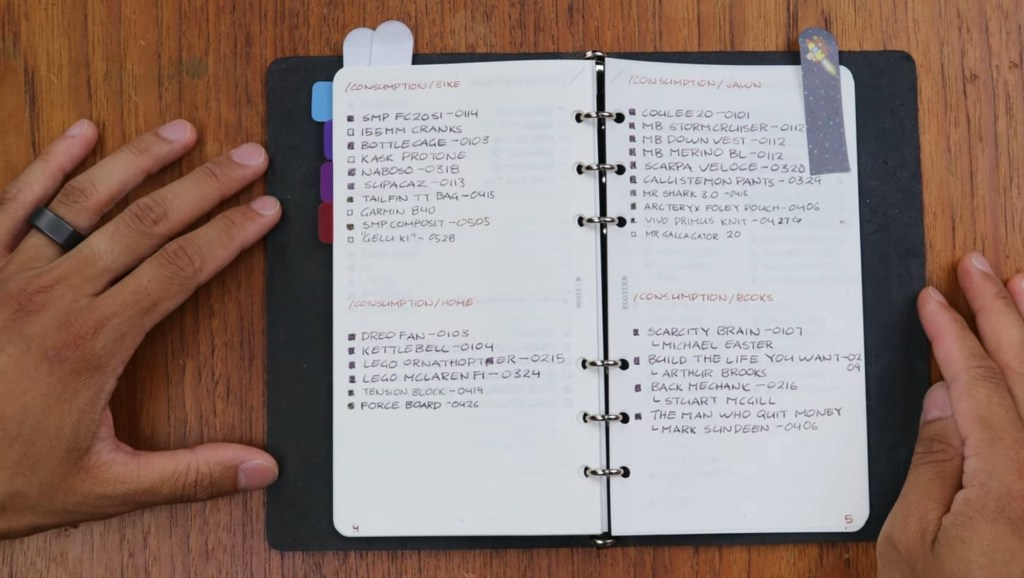 /CONSUMPTION/BIKE
SMP FC20S1-0114
155MM CRANKS
BOTTLE CAGE-0103
KASK PROTONE
NABOSO-0318
SUPACAZ-0113
TAILFIN TT BAG-0413
GARMIN 840
SMP COMPOSIT-0505
"GELU K1"-0528
/CONSUMPTION/HOME
DREO FAN-0103
KETTLEBELL-0104
LEGO ORNATHOPTER-0215
LEGO MCLAREN F1-0324
TENSION BLOCK-0419
FORCE BOARD-0426
4
/CONSUMPTION/JAWN
COULEE 20-0101
MB STORMCRUISER-0112
MB DOWN VEST-0112
MB MERINO BL-0112
SCARPA VELOCE-0320
CALLISTEMON PANTS-0329
MR SHARK 3.0
ARCTERYX FOLEY POUCH-0406
VIVO PRIMUS KNIT-0427
MR GALLAGATOR 20
PLOTTER
/CONSUMPTION/BOOKS
SCARCITY BRAIN-0107
MICHAEL EASTER
BUILD THE LIFE YOU WANT-02
ARTHUR BROOKS 09
BACK MECHANIC-0216
STUART MCGILL
THE MAN WHO QUIT MONEY
MARK SUNDEEN-0406
5